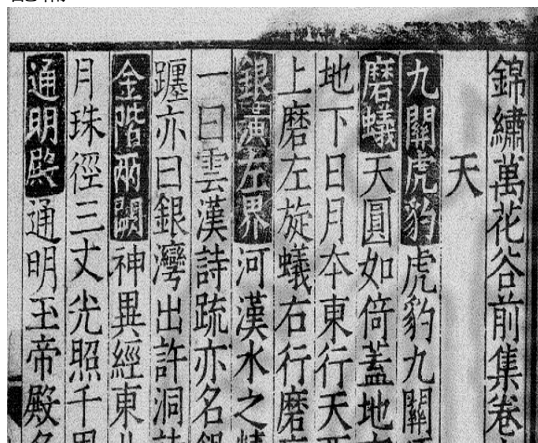 錦繡萬花谷前集卷
天
九關虎豹虎豹九關
磨蟻天圓如倚蓋地
地下日月夲東行天
上磨左旋蟻右行磨
銀潢左界河漢水之精
一曰雲漢詩疏亦名銀
躔亦曰銀灣出許洞
金階兩闕神異經東
月珠徑三丈光照千里
通明殿通明玉帝殿名